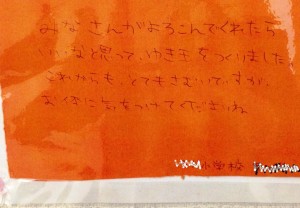 みなさんがよろこんでくれたら
いいなと思って、ゆき玉をつくりました。
これからも、とてもさむいですが、
お体に気をつけてくださいね
小学校